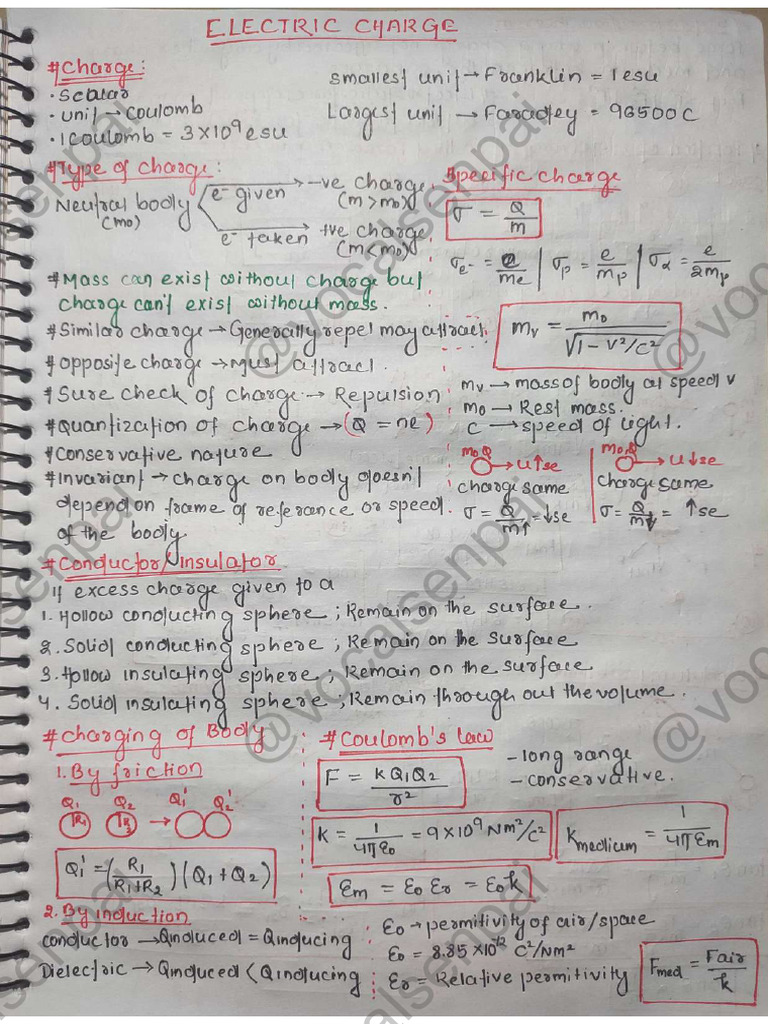 ELECTRIC CHARGE
#Charge:
• Scalar
• unit → coulomb
• 1 coulomb = 3×10⁹ esu
smallest unit → Franklin = 1 esu
Largest unit → Faradey = 96500 C
#Type of charge:
Neutral body (m₀)
e⁻ given → -ve charge (m > m₀)
e⁻ taken → +ve charge (m < m₀)
#Mass can exist without charge but
charge can't exist without mass.
#Similar charge → Generally repel may attract.
#opposite charge → Must attract.
#Sure check of charge → Repulsion
#Quantization of charge → (Q = ne)
#Conservative nature
#Invariant → charge on body doesn't
depend on frame of referance or speed
of the body
#Specific charge
σ = Q/m
σe⁻ = e/me | σp = e/mp | σα = e/2mp
mv = m₀/√1 - V²/c²
mv → mass of body at speed v
m₀ → Rest mass.
c → speed of light.
m₀,Q → u↑se
charge same
σ = Q/m↑ = ↓se
m₀,Q → u↓se
charge same
σ = Q/m↓ = ↑se
#Conductor/insulator
If excess charge given to a
1. Hollow conducting sphere ; Remain on the surface.
2. Solid conducting sphere ; Remain on the surface
3. Hollow insulating sphere ; Remain on the surface
4. Solid insulating sphere ; Remain through out the volume.
#Charging of Body
1. By friction
Q₁ Q₂ Q₁' Q₂'
R₁ R₂ →
Q₁' = (R₁/R₁+R₂)(Q₁+Q₂)
2. By induction
conductor → Qinduced = Qinducing
Dielectric → Qinduced < Qinducing
#Coulomb's law
F = kQ₁Q₂/r²
- long range
- conservative.
k = 1/4πε₀ = 9×10⁹ Nm²/c²
kmedium = 1/4πεm
εm = ε₀εr = ε₀k
ε₀ → permitivity of air/space
ε₀ = 8.85×10⁻¹² C²/Nm²
εr = Relative permitivity
Fmed = Fair/k
@vocalsenpai